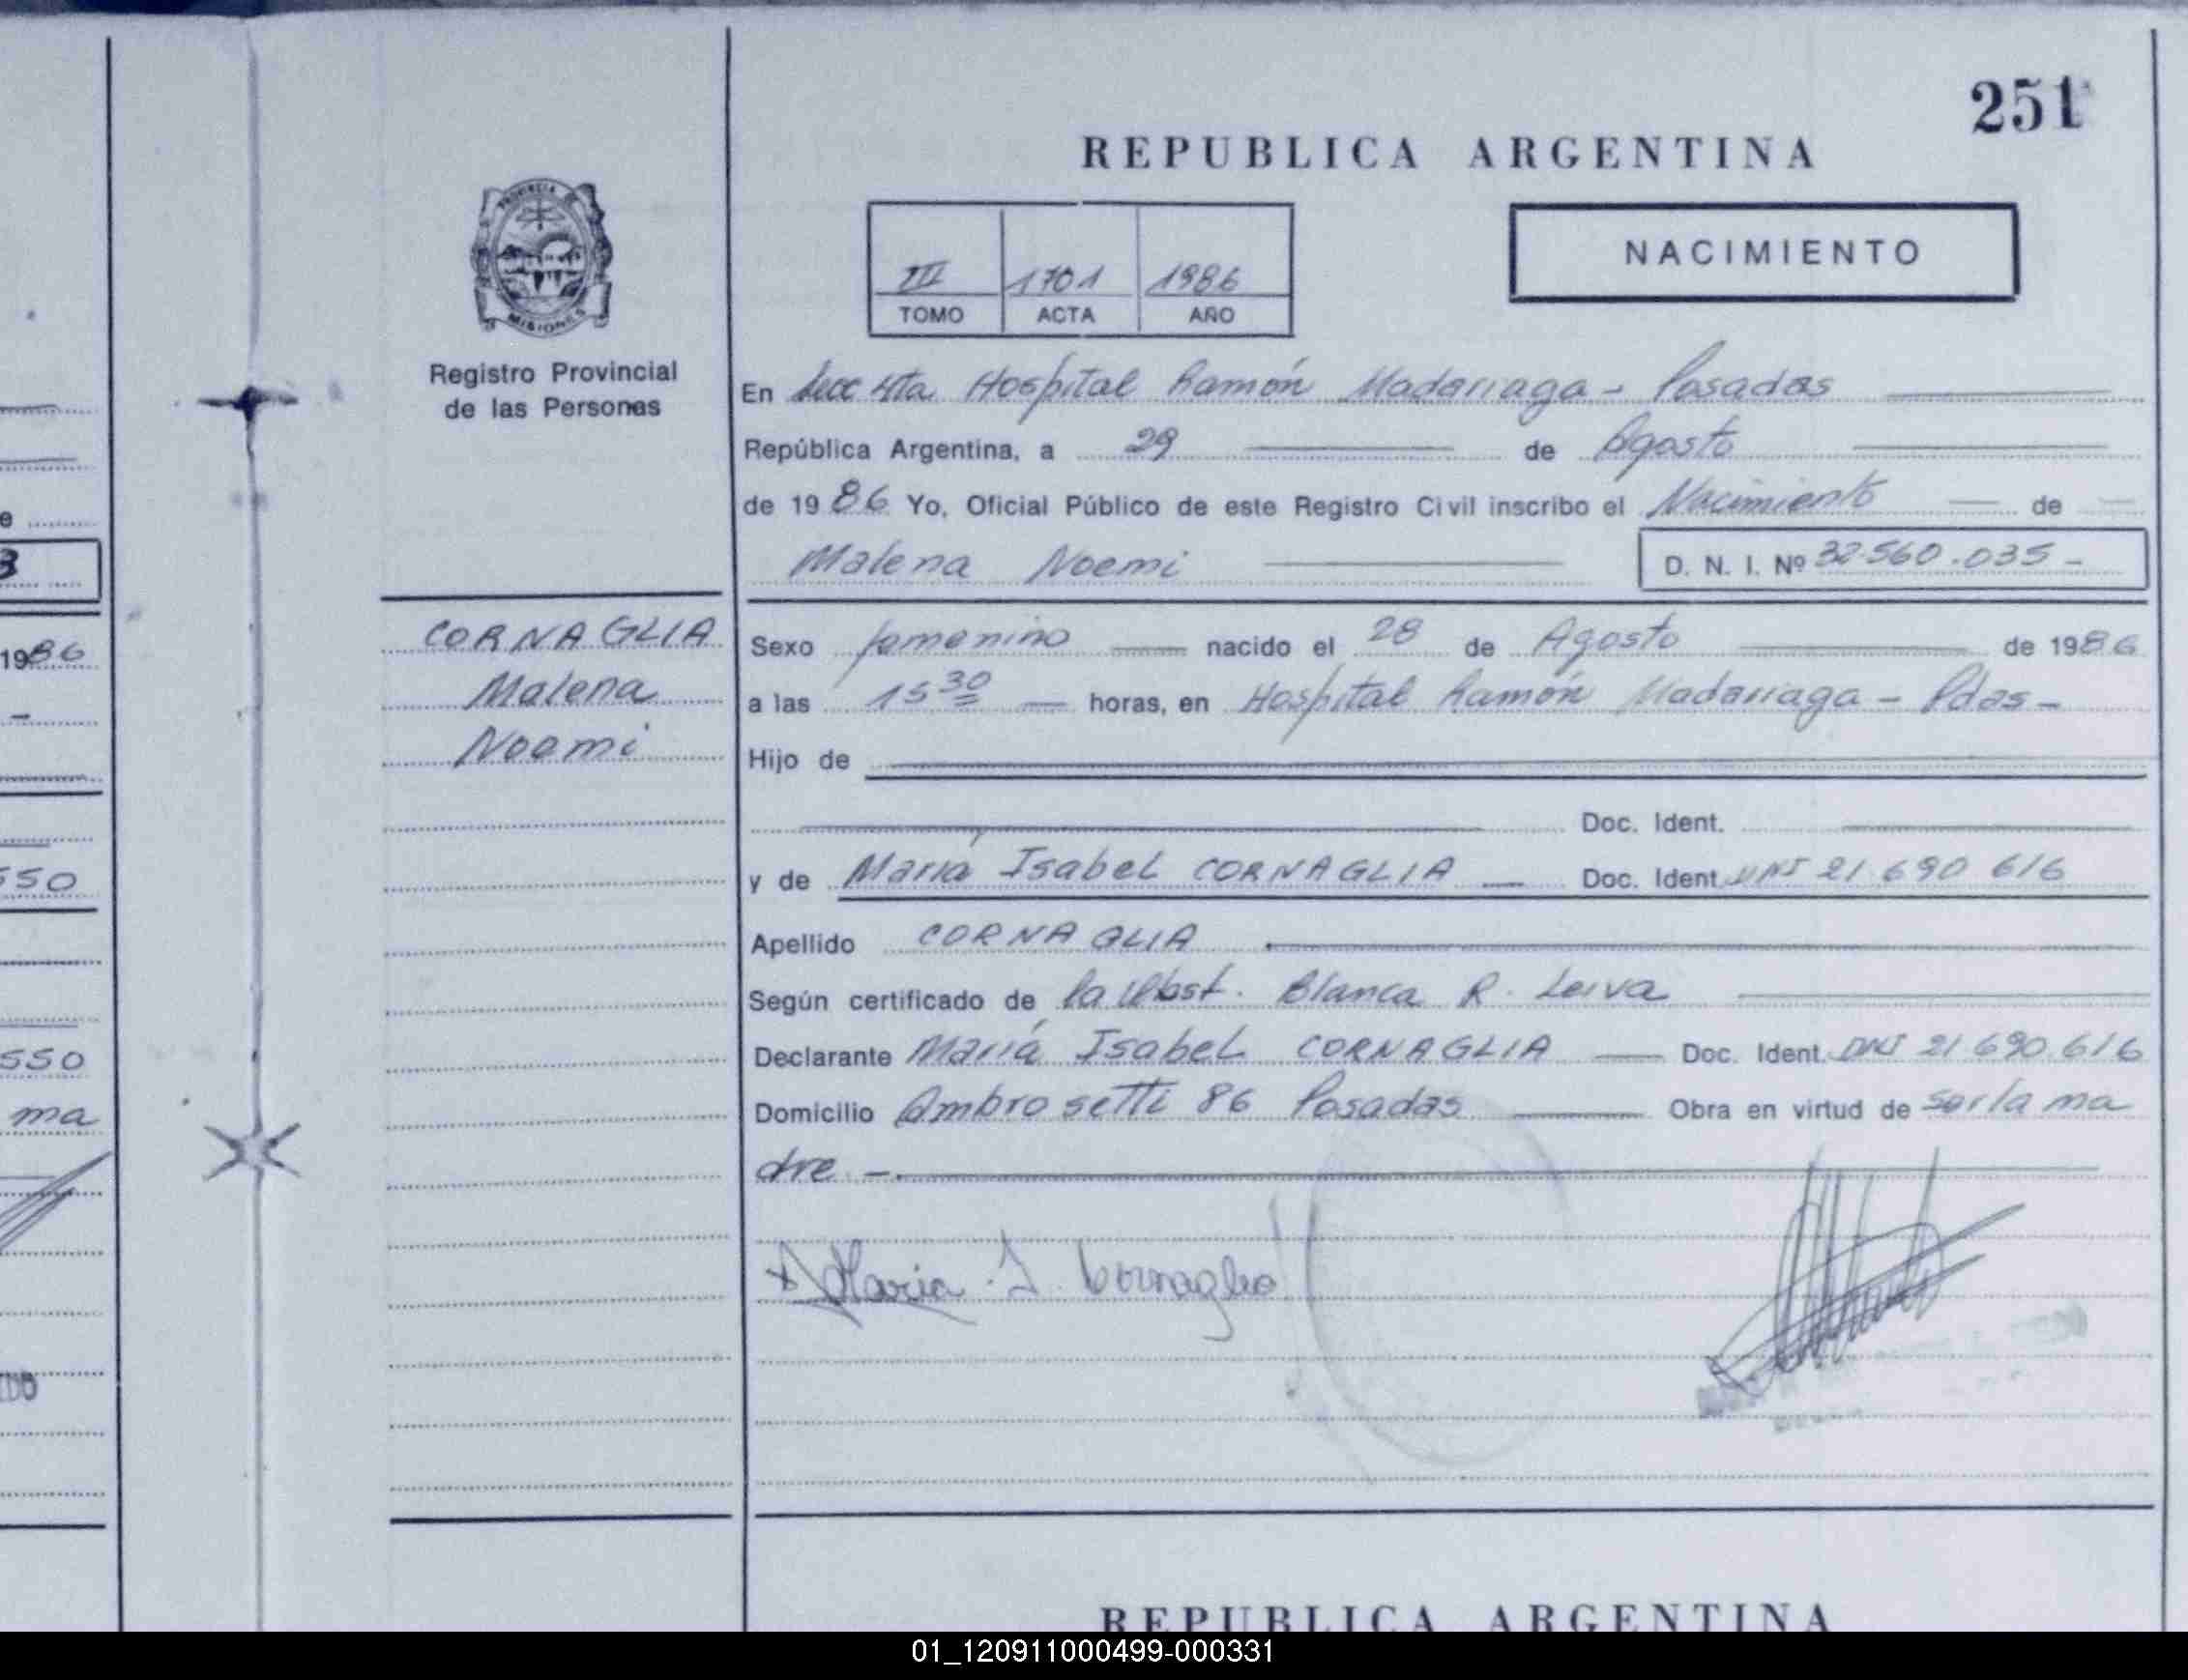 251
REPUBLICA ARGENTINA
NACIMIENTO
III 1701 1986
TOMO ACTA AÑO
PROVINCIA DE
MISIONES
Registro Provincial
de las Personas
CORNAGLIA
Malena
Noemi
En Secc 4ta Hospital Ramón Madariaga - Posadas
República Argentina, a 29 de Agosto
de 1986 Yo, Oficial Público de este Registro Civil inscribo el Nacimiento de
Malena Noemi D. N. I. Nº 32.560.035 -
Sexo femenino nacido el 28 de Agosto de 1986
a las 15 30 horas, en Hospital Ramón Madariaga - Pdas -
Hijo de
Doc. Ident.
y de María Isabel CORNAGLIA Doc. Ident. DNI 21 690 616
Apellido CORNAGLIA
Según certificado de la Obst. Blanca R. Leiva
Declarante María Isabel CORNAGLIA Doc. Ident. DNI 21 690.616
Domicilio Ambrosetti 86 Posadas Obra en virtud de ser la ma
dre -.
x Maria I. Cornaglia
e
3
1986
550
550
ma
IDO
REPUBLICA ARGENTINA
01_120911000499-000331